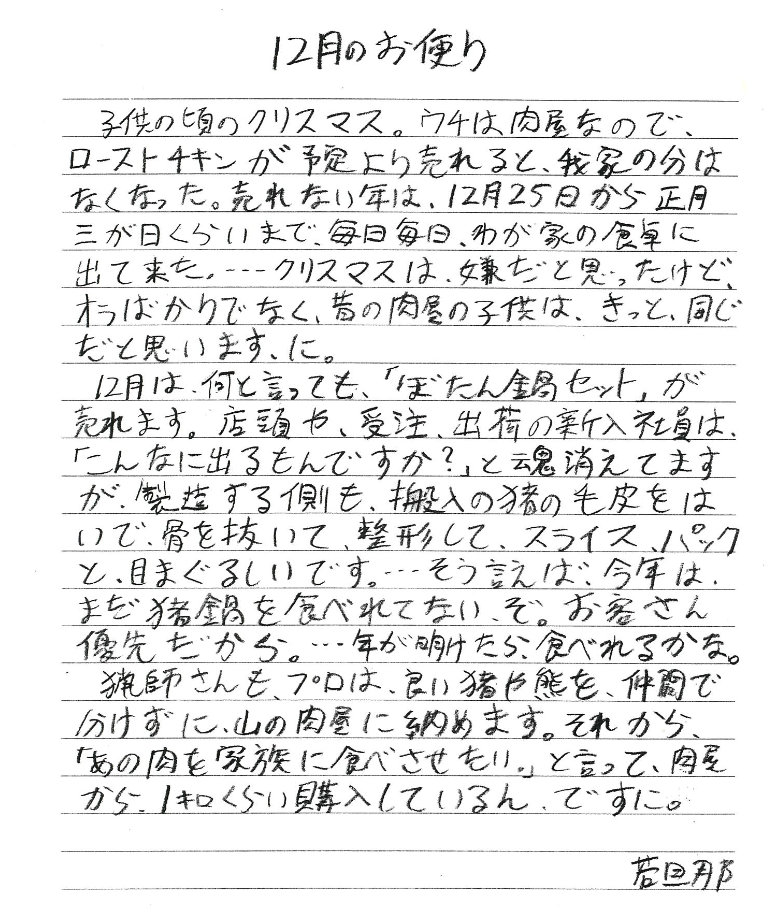 12月のお便り
子供の頃のクリスマス。ウチは肉屋なので、
ローストチキンが予定より売れると、我家の分は
なくなった。売れない年は、12月25日から正月
三が日くらいまで、毎日毎日、わが家の食卓に
出て来た。…クリスマスは、嫌だと思ったけど、
オラばかりでなく、昔の肉屋の子供は、きっと、同じ
だと思います、に。
12月は、何と言っても、「ぼたん鍋セット」が
売れます。店頭や、受注、出荷の新入社員は、
「こんなに出るもんですか?」と魂消えてます
が、製造する側も、搬入の猪の毛皮をは
いで、骨を抜いて、整形して、スライス、パック
と、目まぐるしいです。…そう言えば、今年は、
まだ猪鍋を食べれてない、ぞ。お客さん
優先だから。…年が明けたら、食べれるかな。
猟師さんも、プロは、良い猪や熊を、仲間で
分けずに、山の肉屋に納めます。それから、
「あの肉を家族に食べさせたい。」と言って、肉屋
から、1キロくらい購入しているん、ですに。